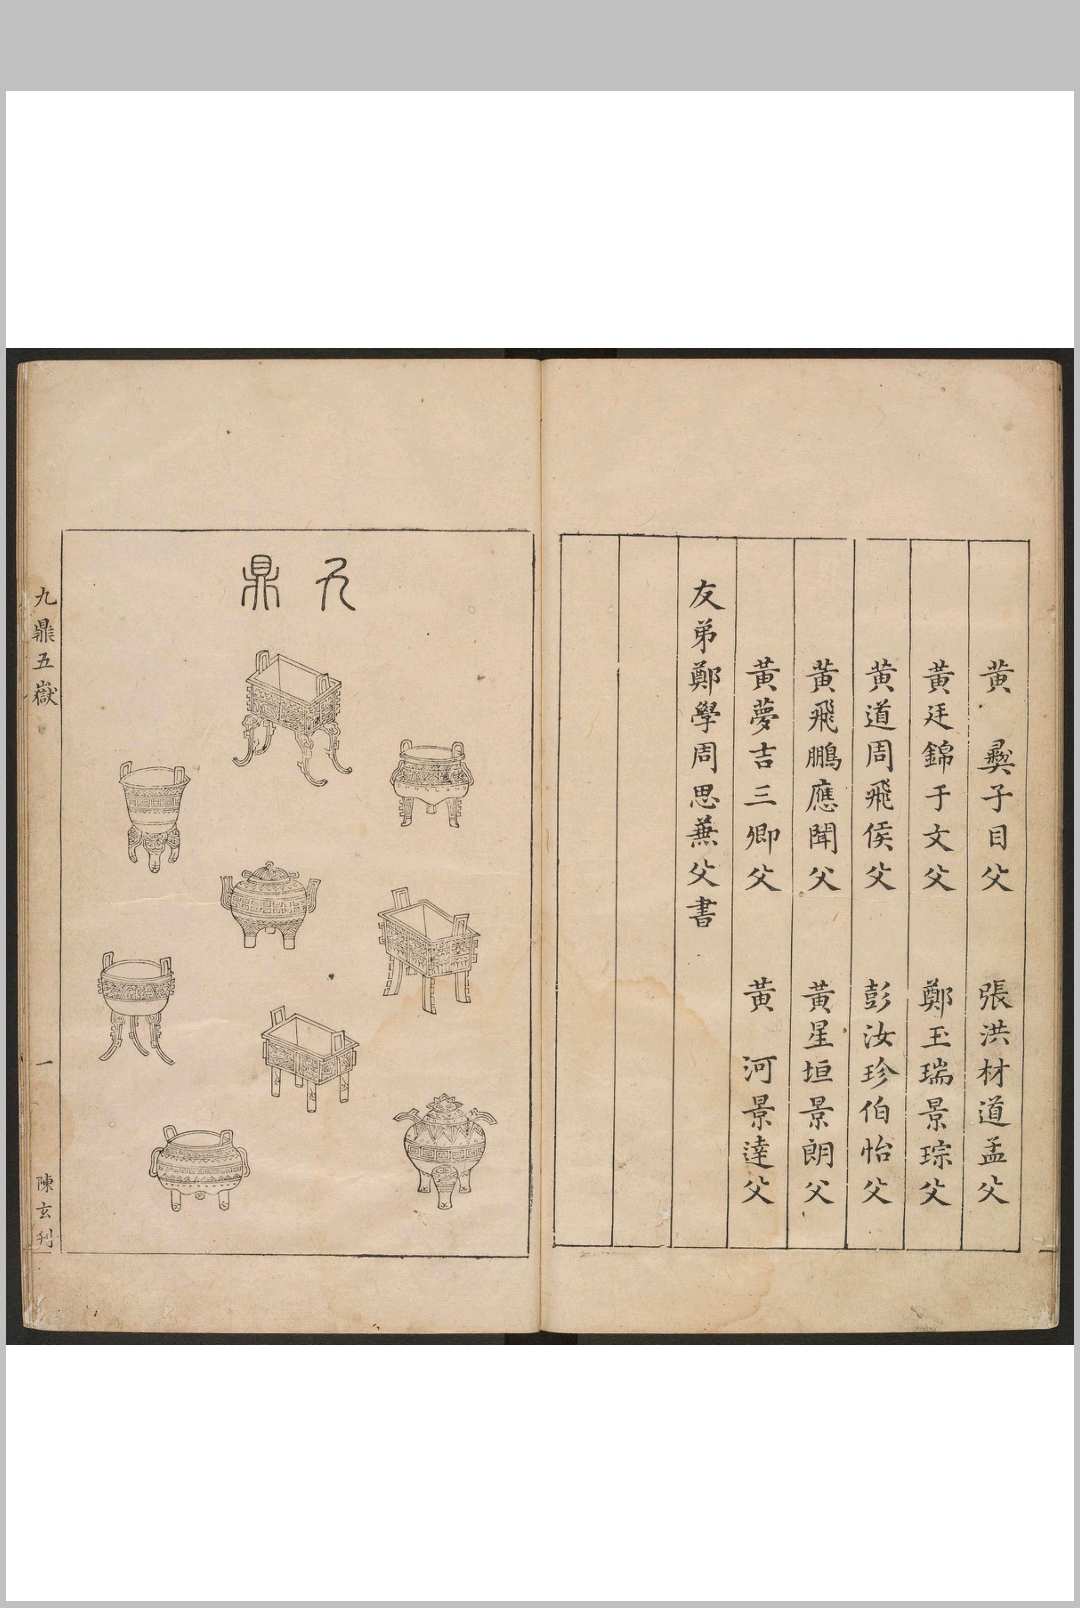 黃　彝子目父　張洪材道孟父
黃廷錦于文父　鄭玉瑞景琮父
黃道周飛侯父　彭汝珍伯怡父
黃飛鵬應聞父　黃星垣景朗父
黃夢吉三卿父　黃　河景達父
友弟鄭學周思兼父書
九鼎
九鼎五嶽
一
陳玄刋